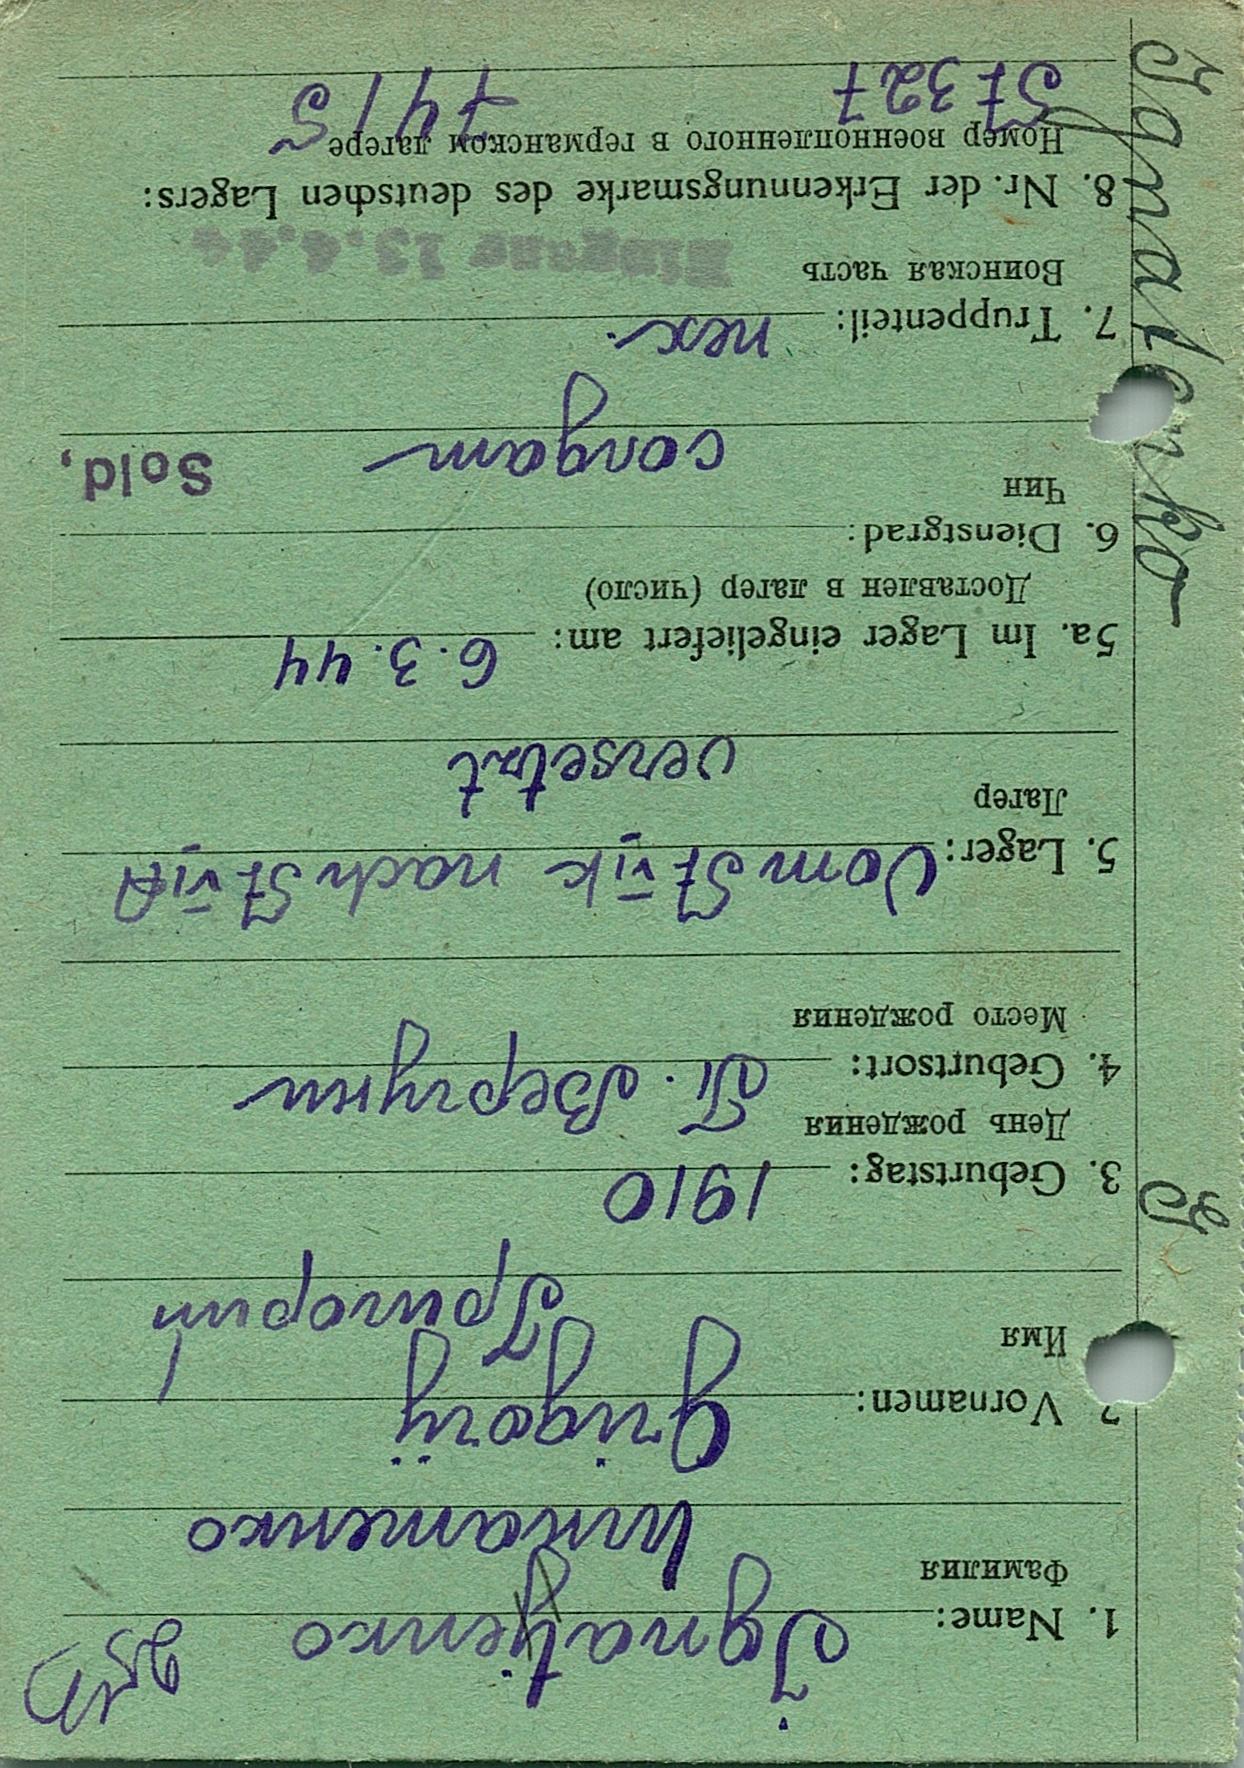 1. Name: Ignatjenko
Фамилия Игнатенко
2. Vornamen: Grigorij
Имя Григорий
3. Geburtstag: 1910
День рождения
4. Geburtsort: П. Вергуни
Место рождения
5. Lager: Vom St VIK nach St VIA
Лагер versetzt
5a. Im Lager eingeliefert am: 6.3.44
Доставлен в лагер (число)
6. Dienstgrad:
Чин солдат Sold.
7. Truppenteil: пех.
Воинская часть Eingang 13.4.44
8. Nr. der Erkennungsmarke des deutschen Lagers:
Номер военнопленного в германском лагере
St 327 7415
Ignatenko